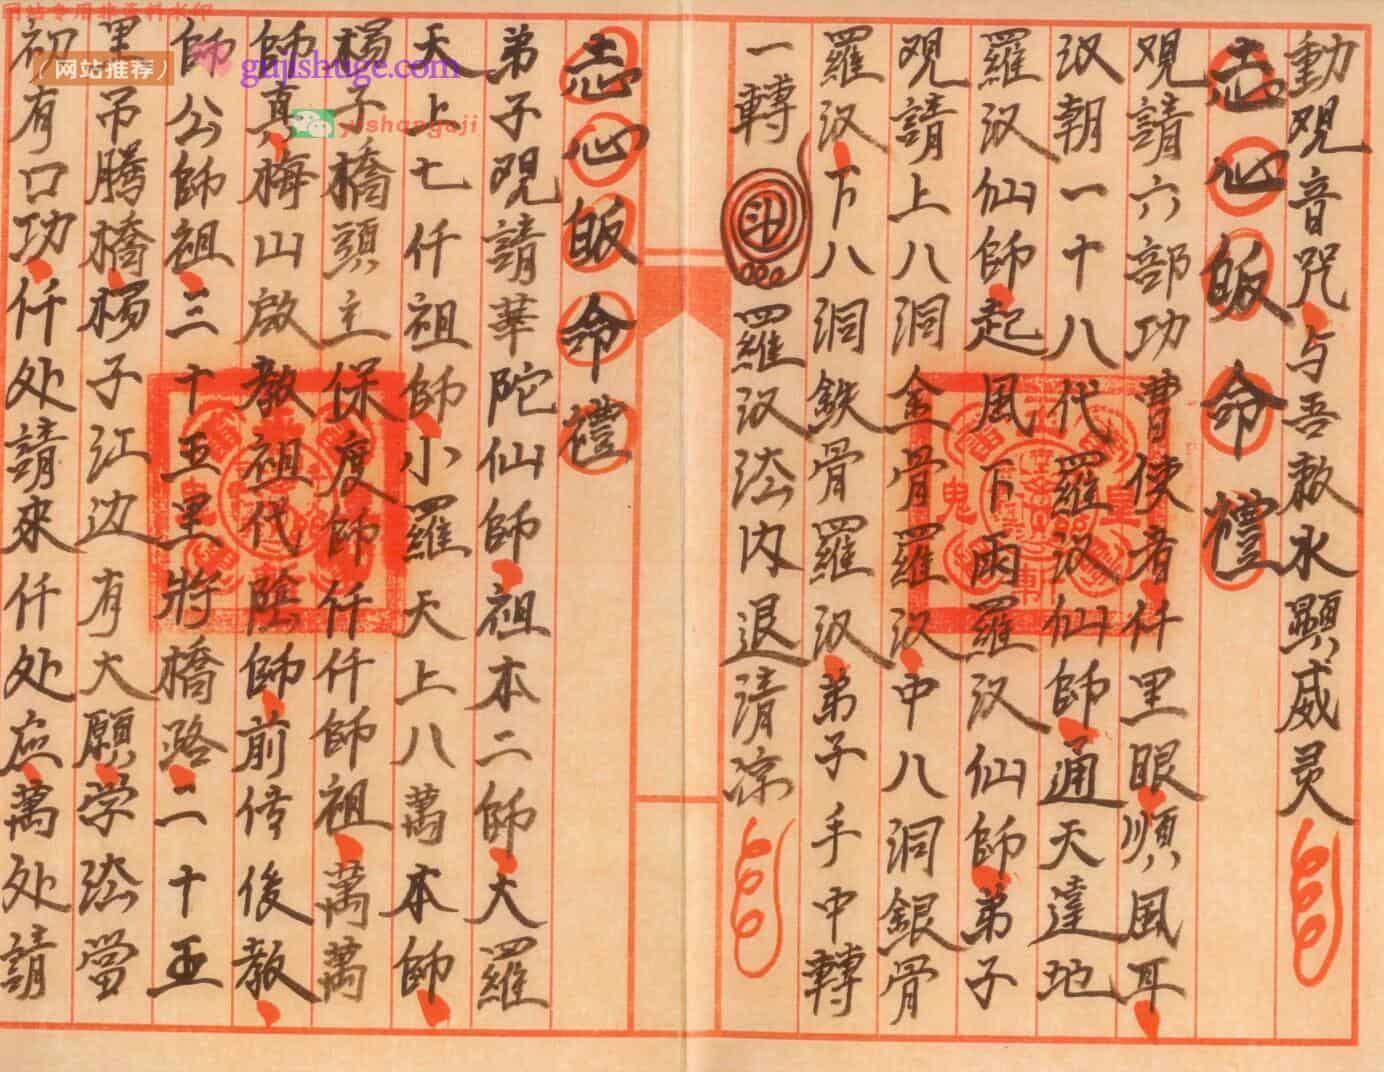 動观音咒与吾敕水顯威灵
志心皈命禮
观請六部功曹使者仟里眼順风耳
汉朝一十八代羅汉仙師通天達地
羅汉仙師起風下雨羅汉仙師弟子
观請上八洞金骨羅汉中八洞銀骨
羅汉下八洞鉄骨羅汉弟子手中轉
一轉
斗
羅汉法内退清凉
志心皈命禮
弟子观請華陀仙師祖本二師大羅
天上七仟祖師小羅天上八萬本師
楊子橋頭主保度師仟仟師祖萬萬
師真梅山啟教祖代陰師前传後教
師公師祖三十五里將橋路二十五
里吊腾橋楊子江边有大願学法當
初有口功仟处請來仟处应萬处請
网站专用非资料水印
（网站推荐）
gujishuge.com
yishangaji